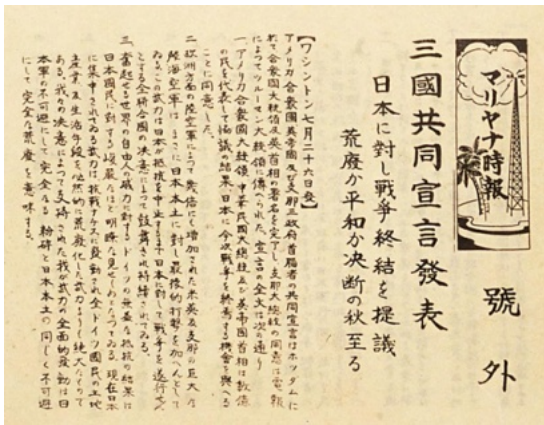 マリヤナ時報
號外
三國共同宣言發表
日本に對し戰爭終結を提議
荒廢か平和か決断の秋至る
【ワシントン七月二十六日發】
アメリカ合衆國英帝國及び支那三政府首腦者の共同宣言はポツダムに
於て合衆國大統領及英首相の署名を完了し、支那大總統の同意は電報
によつてツルーマン大統領に傳へられた。宣言の全文は次の通り
一、アメリカ合衆國大統領、中華民國大總統及び英帝國首相は數億
の民を代表して協議の結果、日本に今次戰爭を終焉する機會を與へる
ことに同意した。
二、歐洲方面の陸空軍によつて數倍にも增加された米英及支那の巨大な
陸海空軍は、まさに日本本土に對し最後的打擊を加へんとして
ゐる。この武力は日本が抵抗を中止するまで日本に對して戰爭を遂行せん
とする全聯合國の決意によつて鼓舞され持續されてゐる。
三、奮起せる世界の自由人の威力に對するドイツの無益な抵抗の結果は
日本國民に對する峻嚴なほど明瞭な見せしめとなつてゐる。現在日本
に集中されてゐる武力は、抗戰ナチスに發動され全ドイツ國民の土地
産業及生活手段を必然的に荒廢化した武力よりも絶大なもので
ある。我々の決意によつて支持された我が武力の全面的發動は日
本軍の不可避にして完全なる粉碎と日本本土の同じく不可避
にして完全な荒廢を意味する。